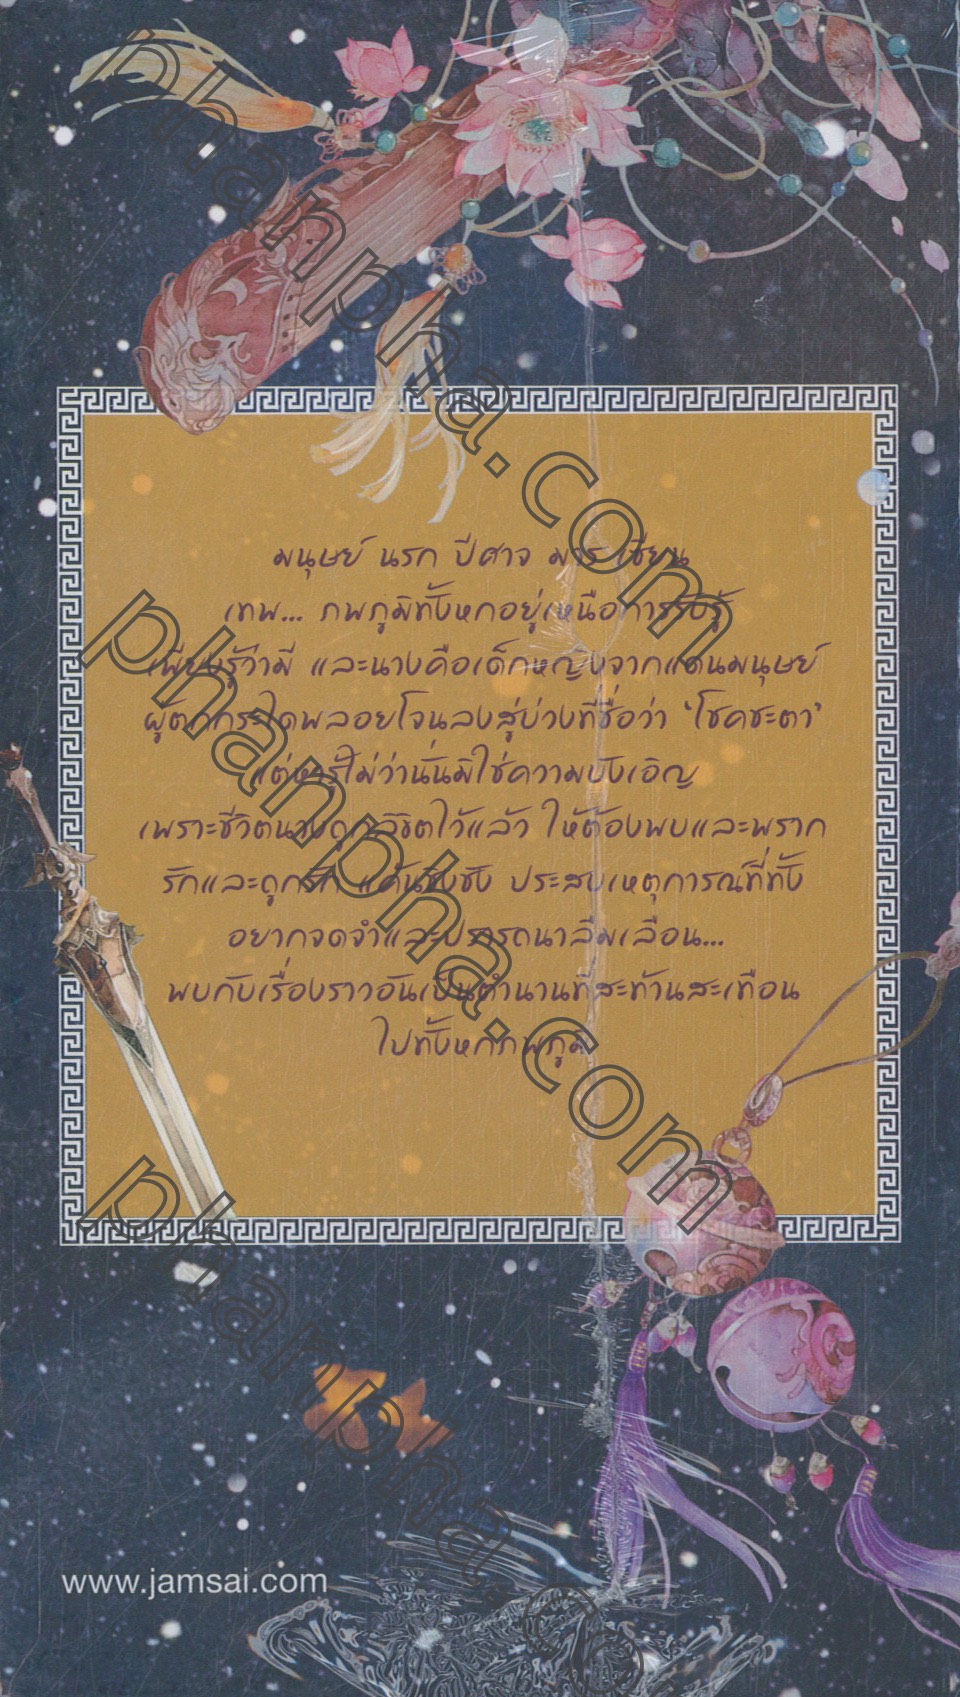 มนุษย์ นรก ปีศาจ มาร เซียน
เทพ... ภพภูมิทั้งหกอยู่เหนือการรับรู้
เพียงรู้ว่ามี และนางคือเด็กหญิงจากแดนมนุษย์
ผู้ตกกระไดพลอยโจนลงสู่บ่วงที่ชื่อว่า ‘โชคชะตา’
แต่หารู้ไม่ว่านั่นมิใช่ความบังเอิญ
เพราะชีวิตนางถูกลิขิตไว้แล้ว ให้ต้องพบและพราก
รักและถูกรัก แค้นชิงชัง ประสบเหตุการณ์ที่ทั้ง
อยากจดจำและปรารถนาลืมเลือน...
พบกับเรื่องราวอันเป็นตำนานที่สะท้านสะเทือน
ไปทั้งหกภพภูมิ
www.jamsai.com
phanpha.com
phanpha.com
phanpha.co